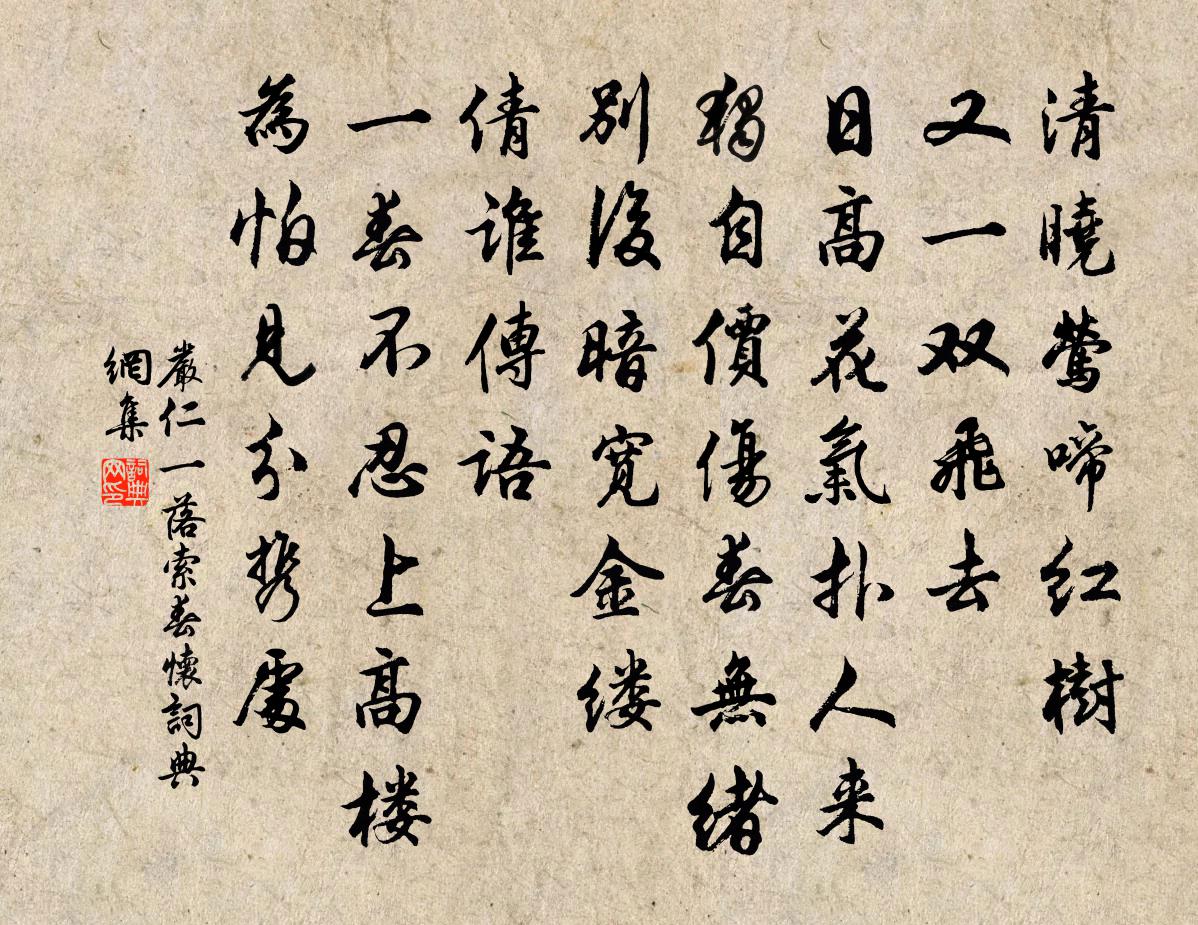 清曉鶯啼红樹
又一双飛去
日高花氣扑人来
獨自價傷春無緒
別後暗寬金缕
倩谁傳语
一春不忍上高楼
為怕見分携處
嚴仁一落索春懷詞典
網集
詞典网印